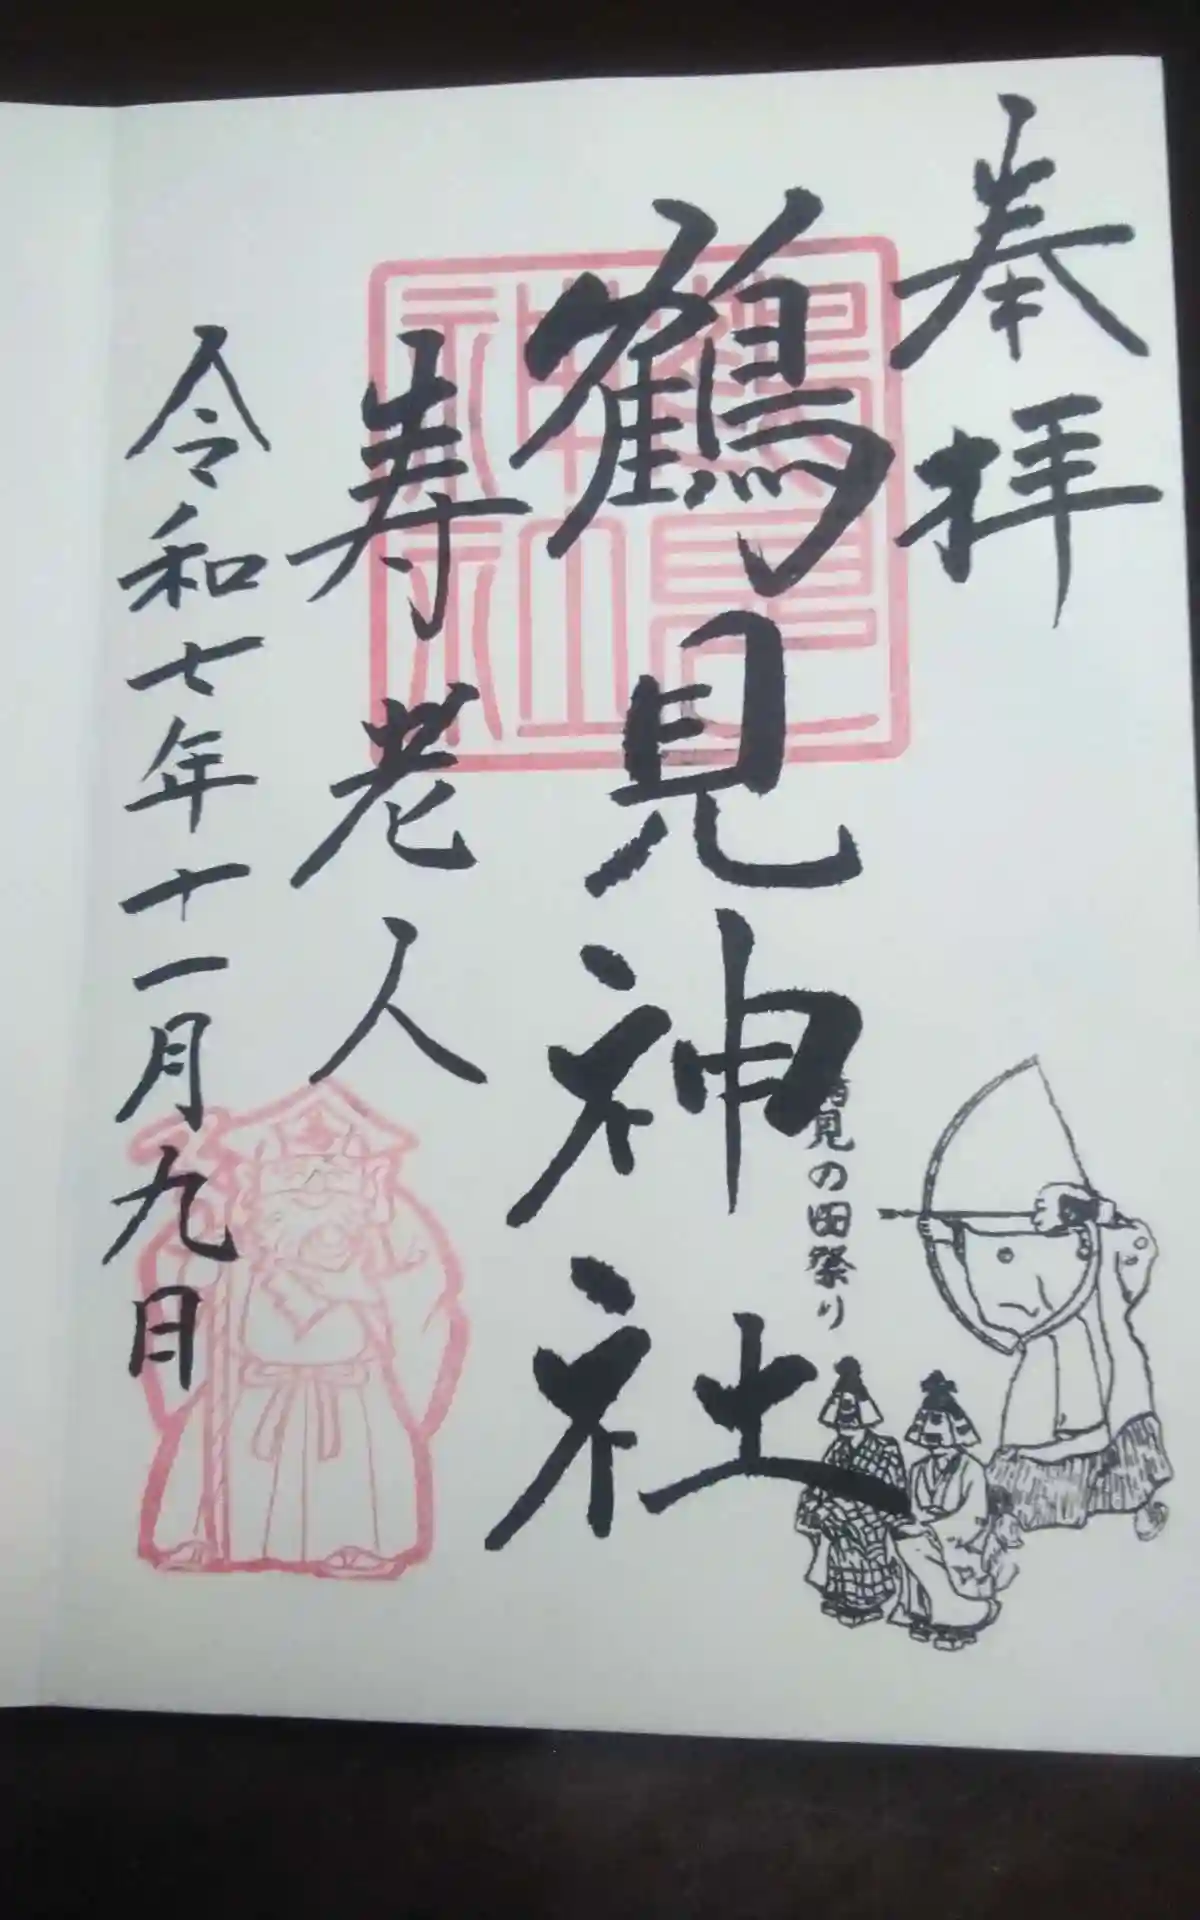 奉拝
鶴見神社
寿老人
令和七年十一月九日
鶴見の田祭り